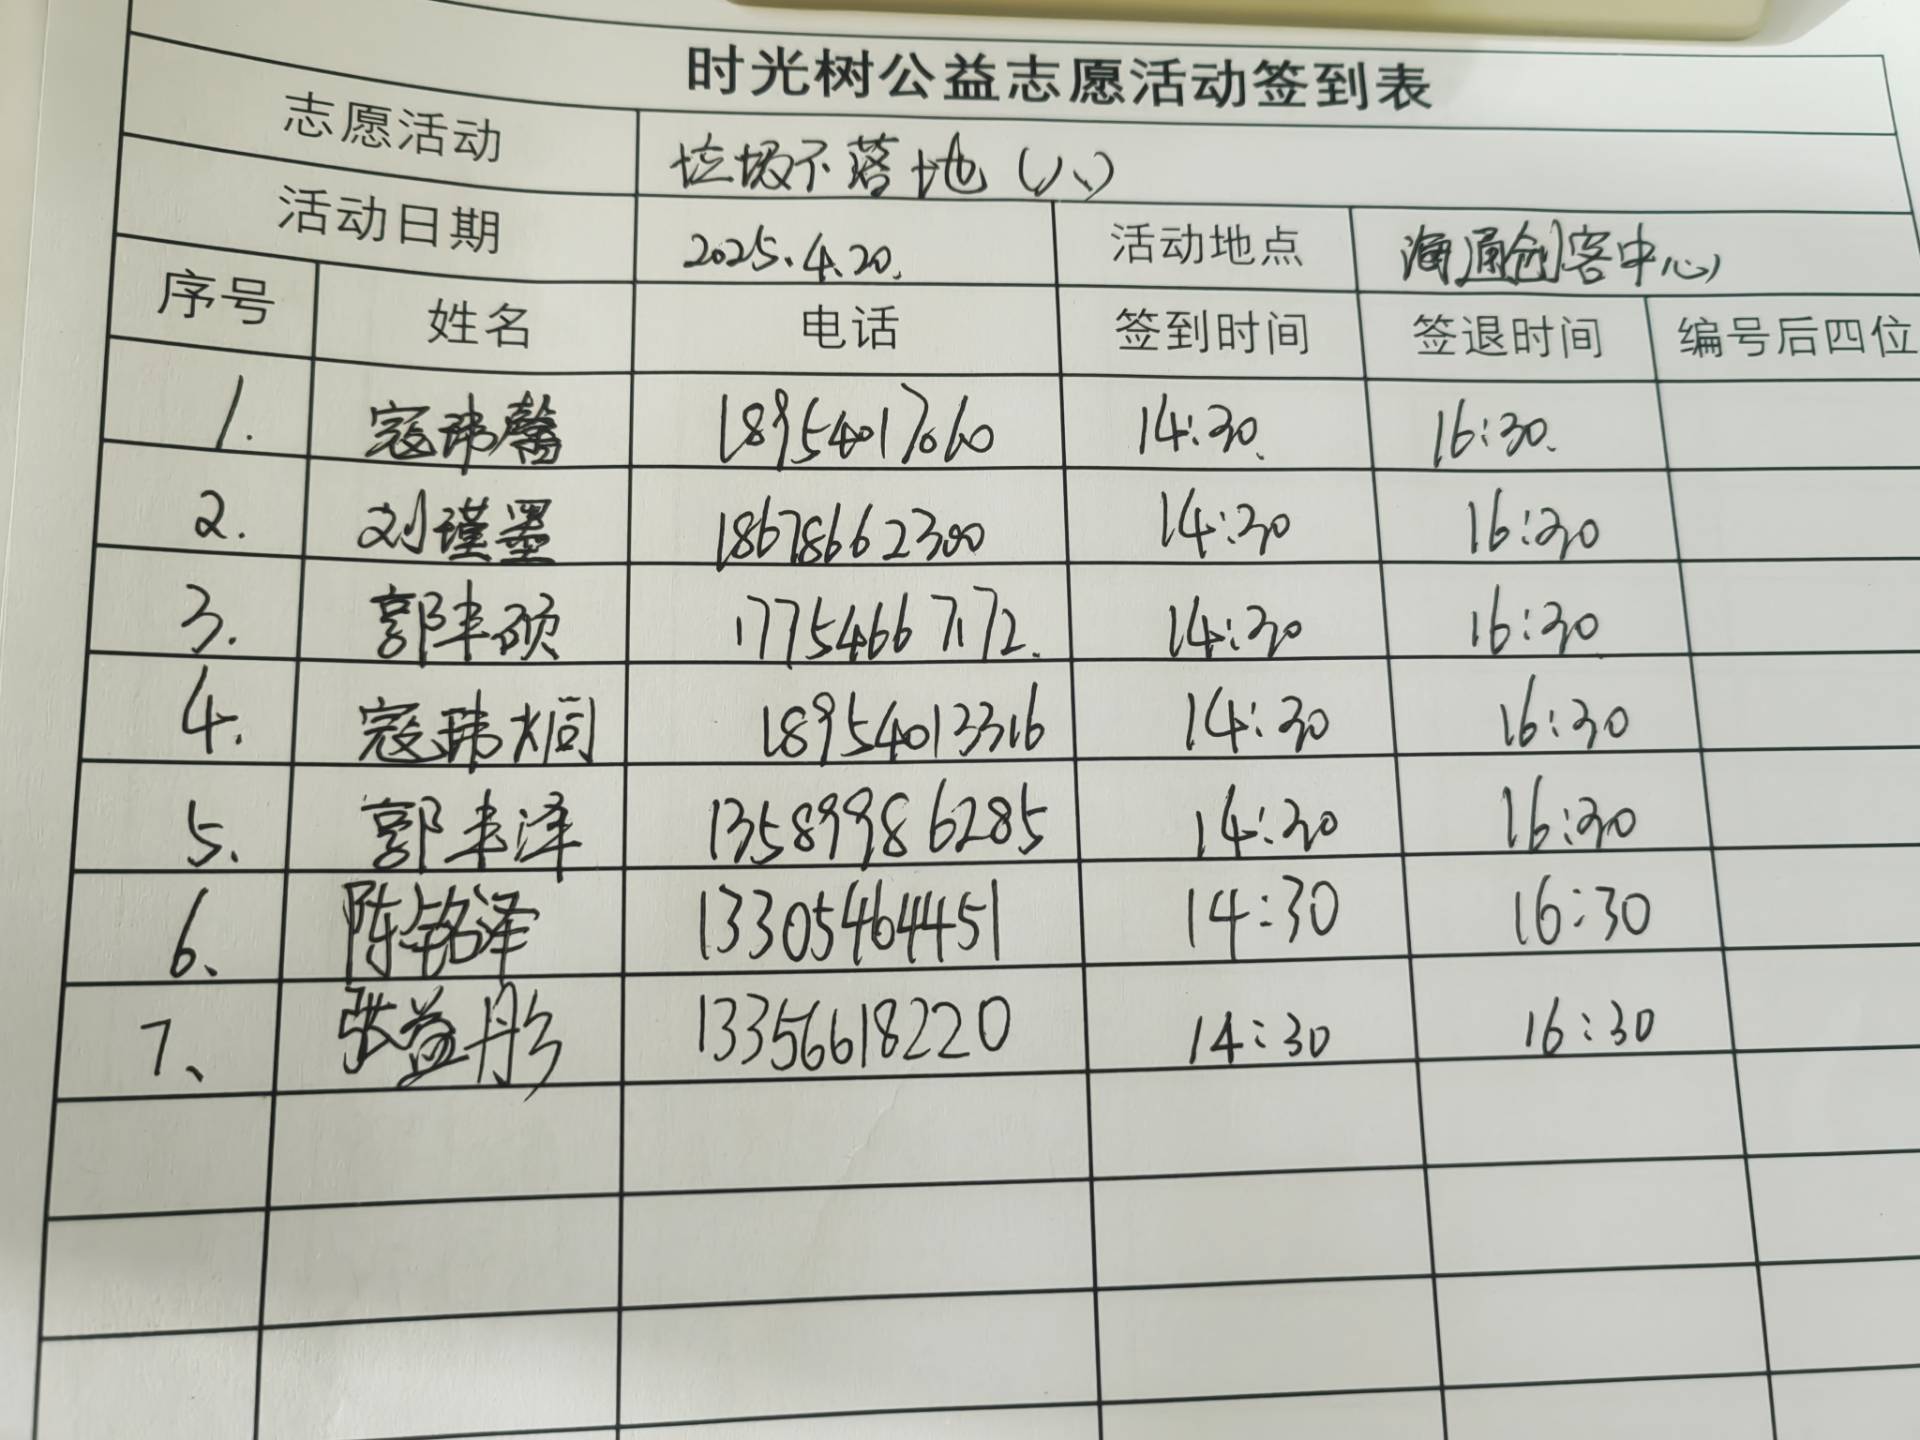 时光树公益志愿活动签到表
志愿活动 垃圾不落地（八）
活动日期 2025.4.20. 活动地点 海通创客中心
序号 姓名 电话 签到时间 签退时间 编号后四位
1. 寇玮馨 18954017060 14:30. 16:30.
2. 刘瑾墨 18678662300 14:30 16:30
3. 郭丰硕 17754667172. 14:30 16:30
4. 寇玮烔 18954013316 14:30 16:30
5. 郭丰泽 13589986285 14:30 16:30
6、 陈铭泽 13305464451 14:30 16:30
7、 张益彤 13356618220 14:30 16:30